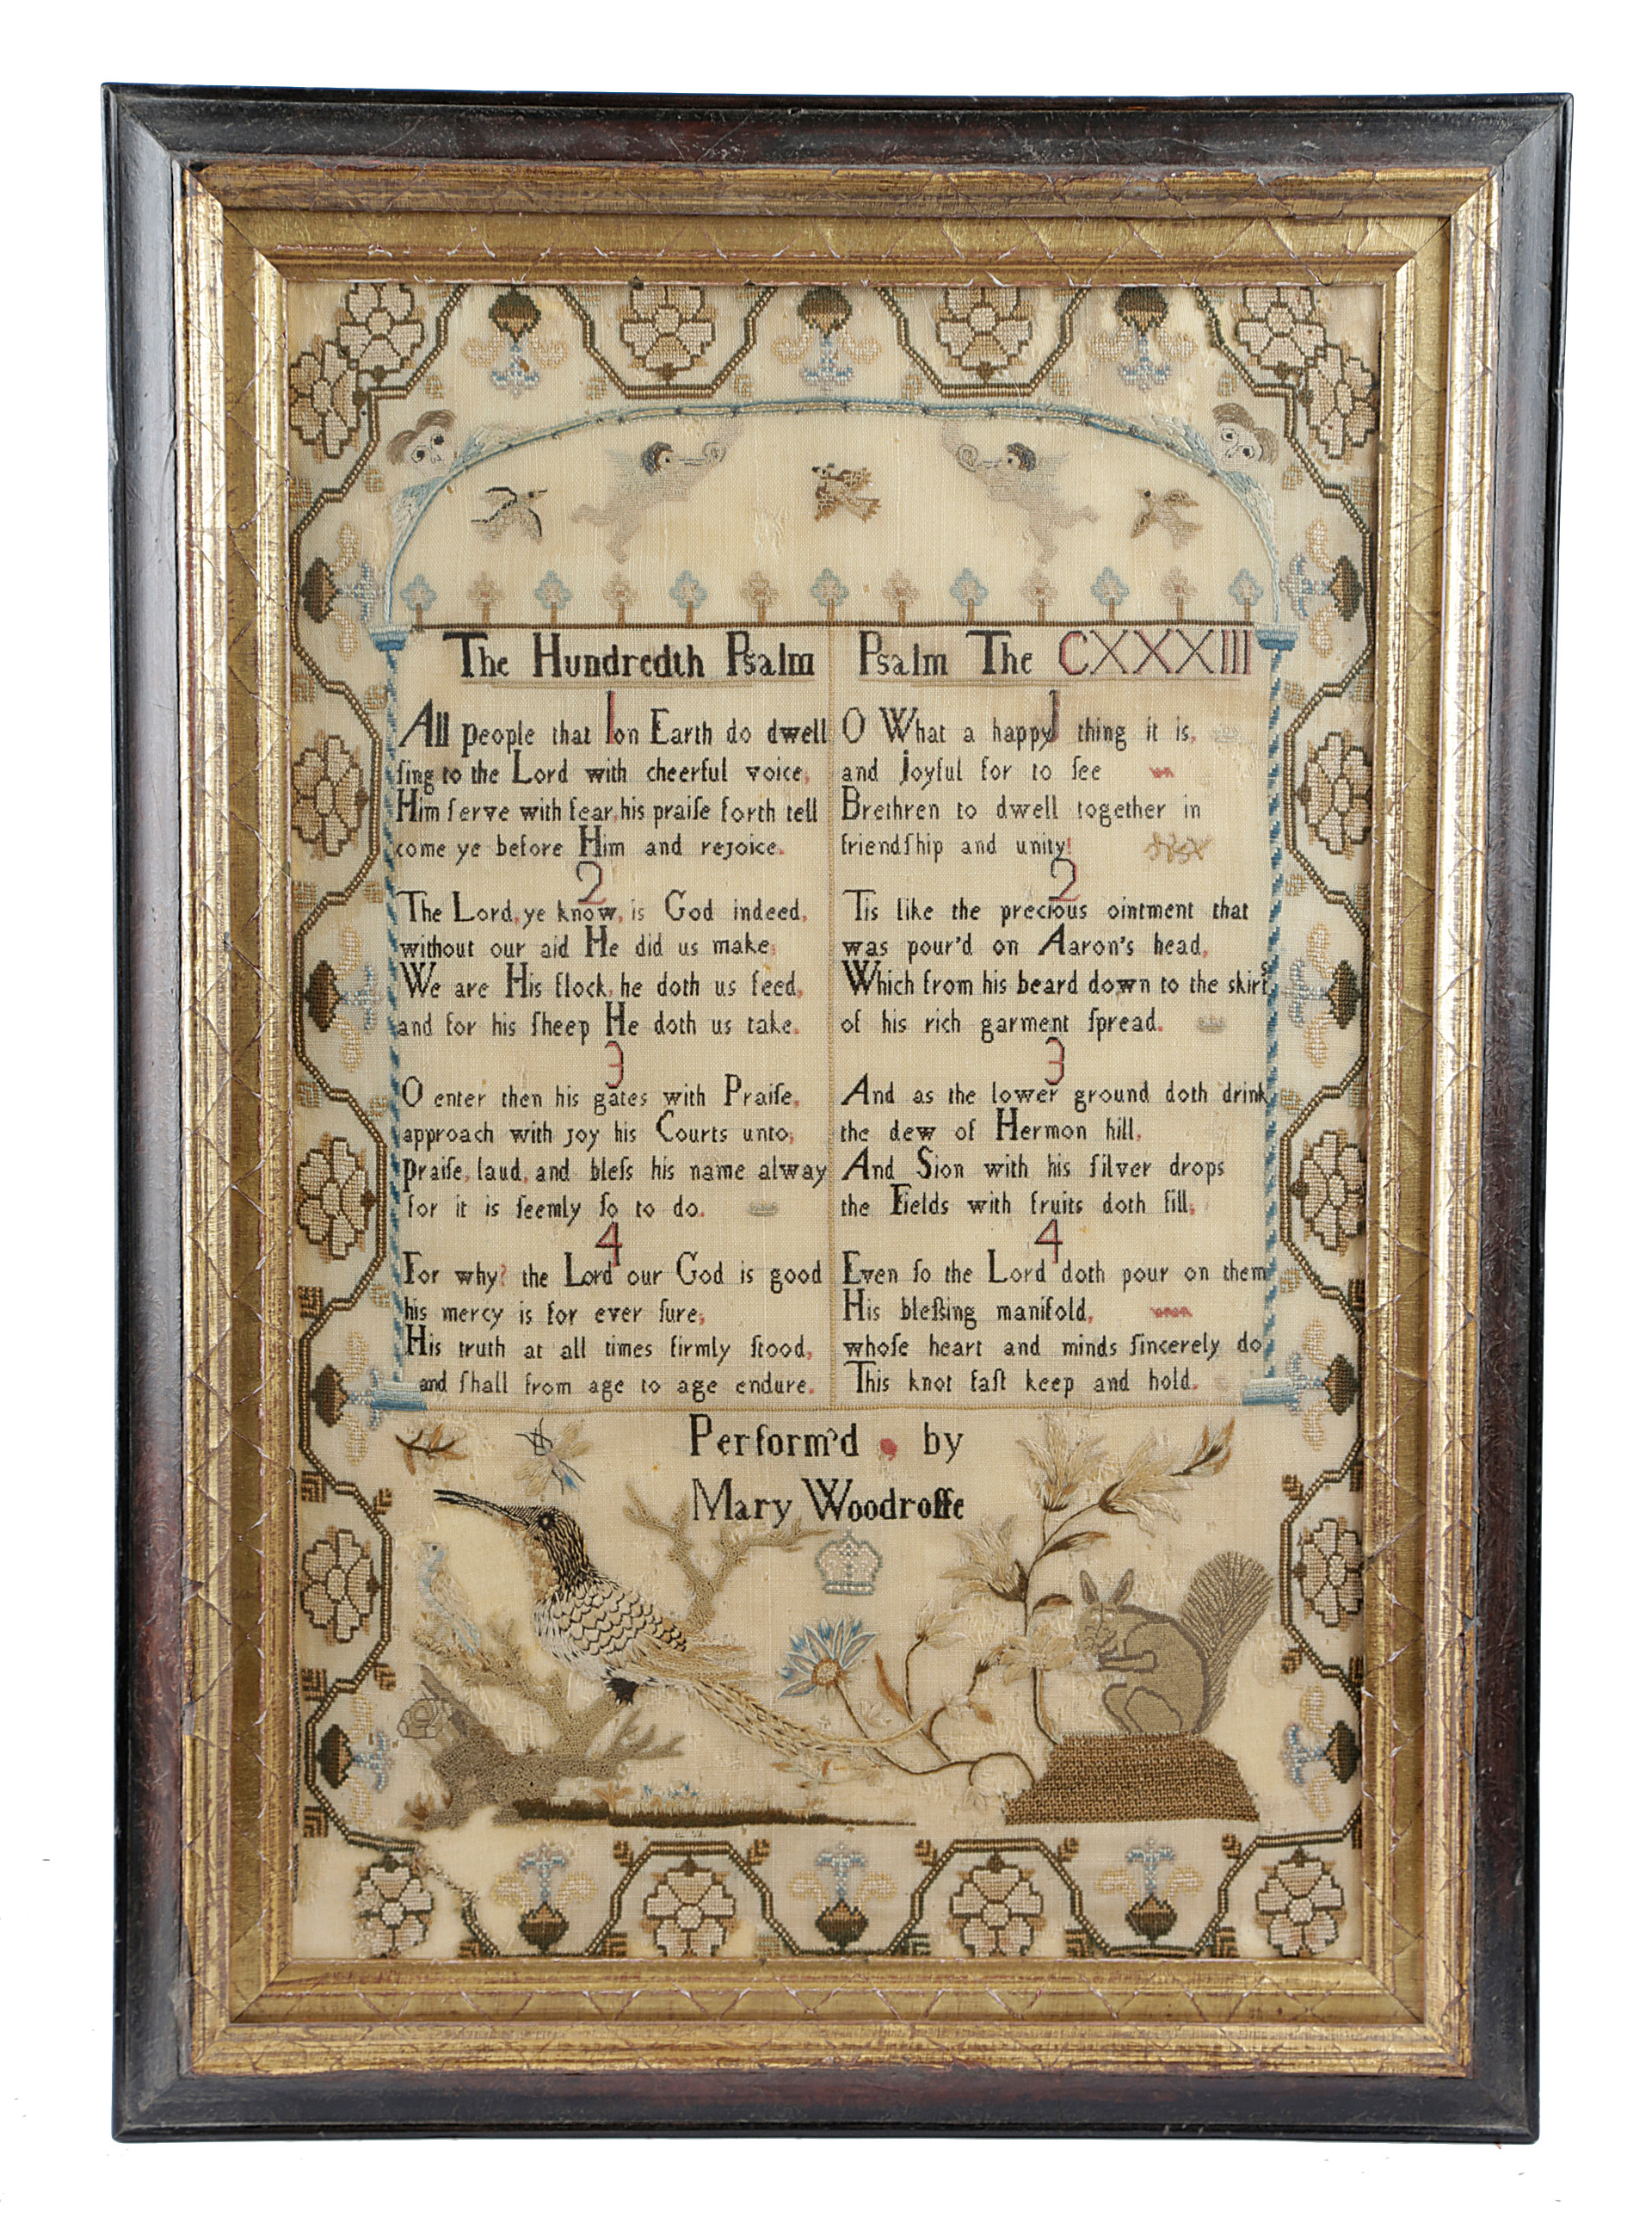 The Hundredth Psalm
1
All people that on Earth do dwell
ſing to the Lord with cheerful voice,
Him ſerve with fear, his praiſe forth tell
come ye before Him and rejoice.
2
The Lord, ye know, is God indeed,
without our aid He did us make;
We are His flock, he doth us feed,
and for his ſheep He doth us take.
3
O enter then his gates with Praiſe,
approach with joy his Courts unto;
praiſe, laud, and bleſs his name alway
for it is ſeemly ſo to do.
4
For why? the Lord our God is good
his mercy is for ever ſure;
His truth at all times firmly ſtood,
and ſhall from age to age endure.
Psalm The CXXXIII
1
O What a happy thing it is,
and joyful for to ſee
Brethren to dwell together in
friendſhip and unity!
2
Tis like the precious ointment that
was pour'd on Aaron's head,
Which from his beard down to the skirts
of his rich garment ſpread.
3
And as the lower ground doth drink
the dew of Hermon hill,
And Sion with his ſilver drops
the Fields with fruits doth fill,
4
Even ſo the Lord doth pour on them
His bleſsing manifold,
whoſe heart and minds ſincerely do
This knot faſt keep and hold.
Perform'd by
Mary Woodroffe